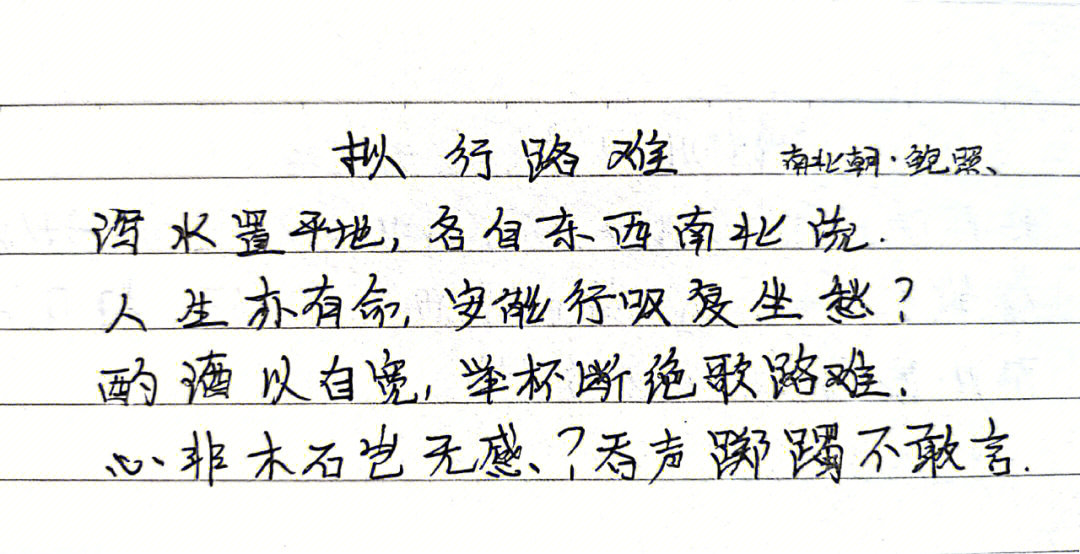 拟行路难 南北朝·鲍照、
泻水置平地,各自东西南北流.
人生亦有命,安能行叹复坐愁?
酌酒以自宽,举杯断绝歌路难.
心非木石岂无感、?吞声踯躅不敢言.